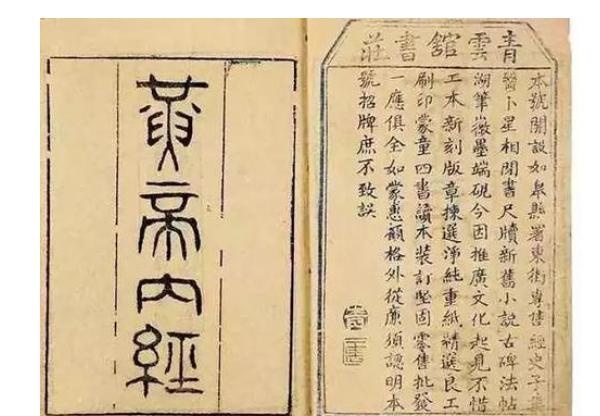 青雲舘書莊
本號開設如皐縣署東街專售經史子集
醫卜星相閒書尺牘新舊小說古碑法帖
湖筆徽墨端硯今因推廣文化起見不惜
工本新刻版章揀選淨純重紙精選良工
刷印蒙童四書讀本裝訂堅固零售批發
一應俱全如蒙惠顧格外從廉須認明本
號招牌庶不致誤
黃帝內經